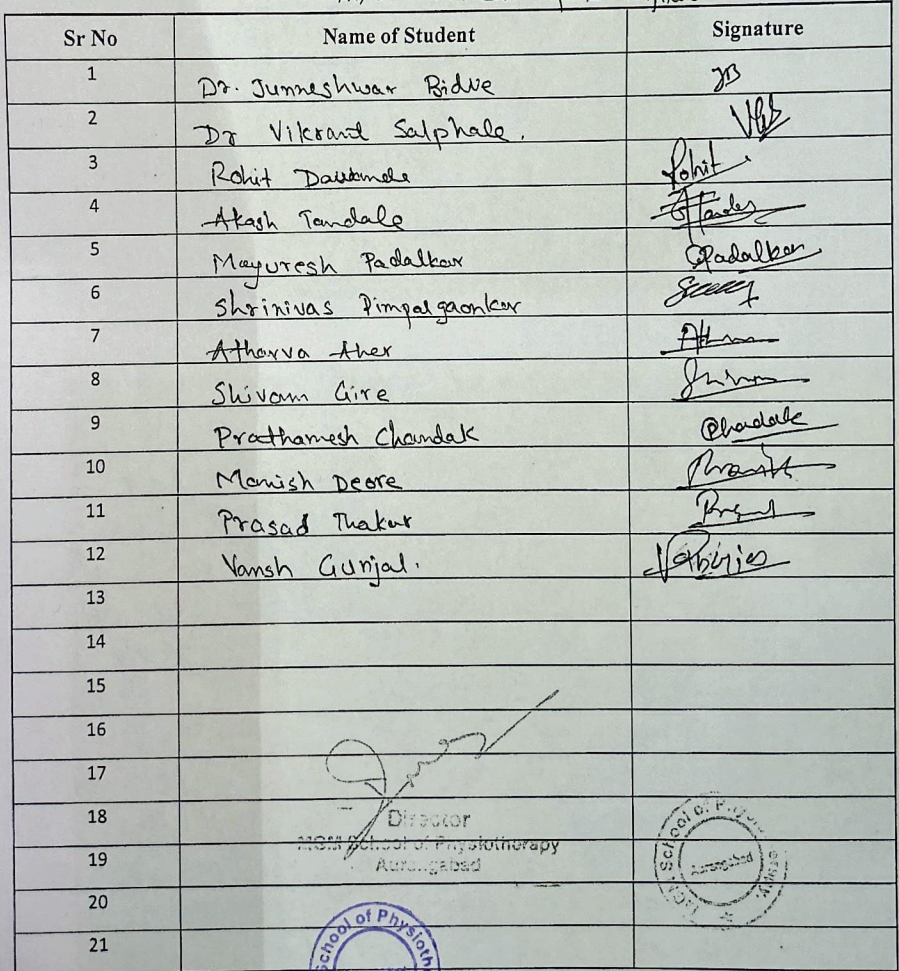 Sr No Name of Student Signature
1 Dr. Junneshwar Bidve JB
2 Dr Vikrant Salphale.
3 Rohit Rohit
4 Akash Tandale
5 Mayuresh Padalkar Padalkar
6 Shrinivas Pimpalgaonkar
7 Atharva Aher
8 Shivam Gire
9 Prathamesh Chandak
10 Manish Deore
11 Prasad Thakur
12 Vansh Gunjal.
13
14
15
16
17
18 Director
MGM School of Physiotherapy
19 Aurangabad
School of Physio
Aurangabad
20
School of Physioth
21